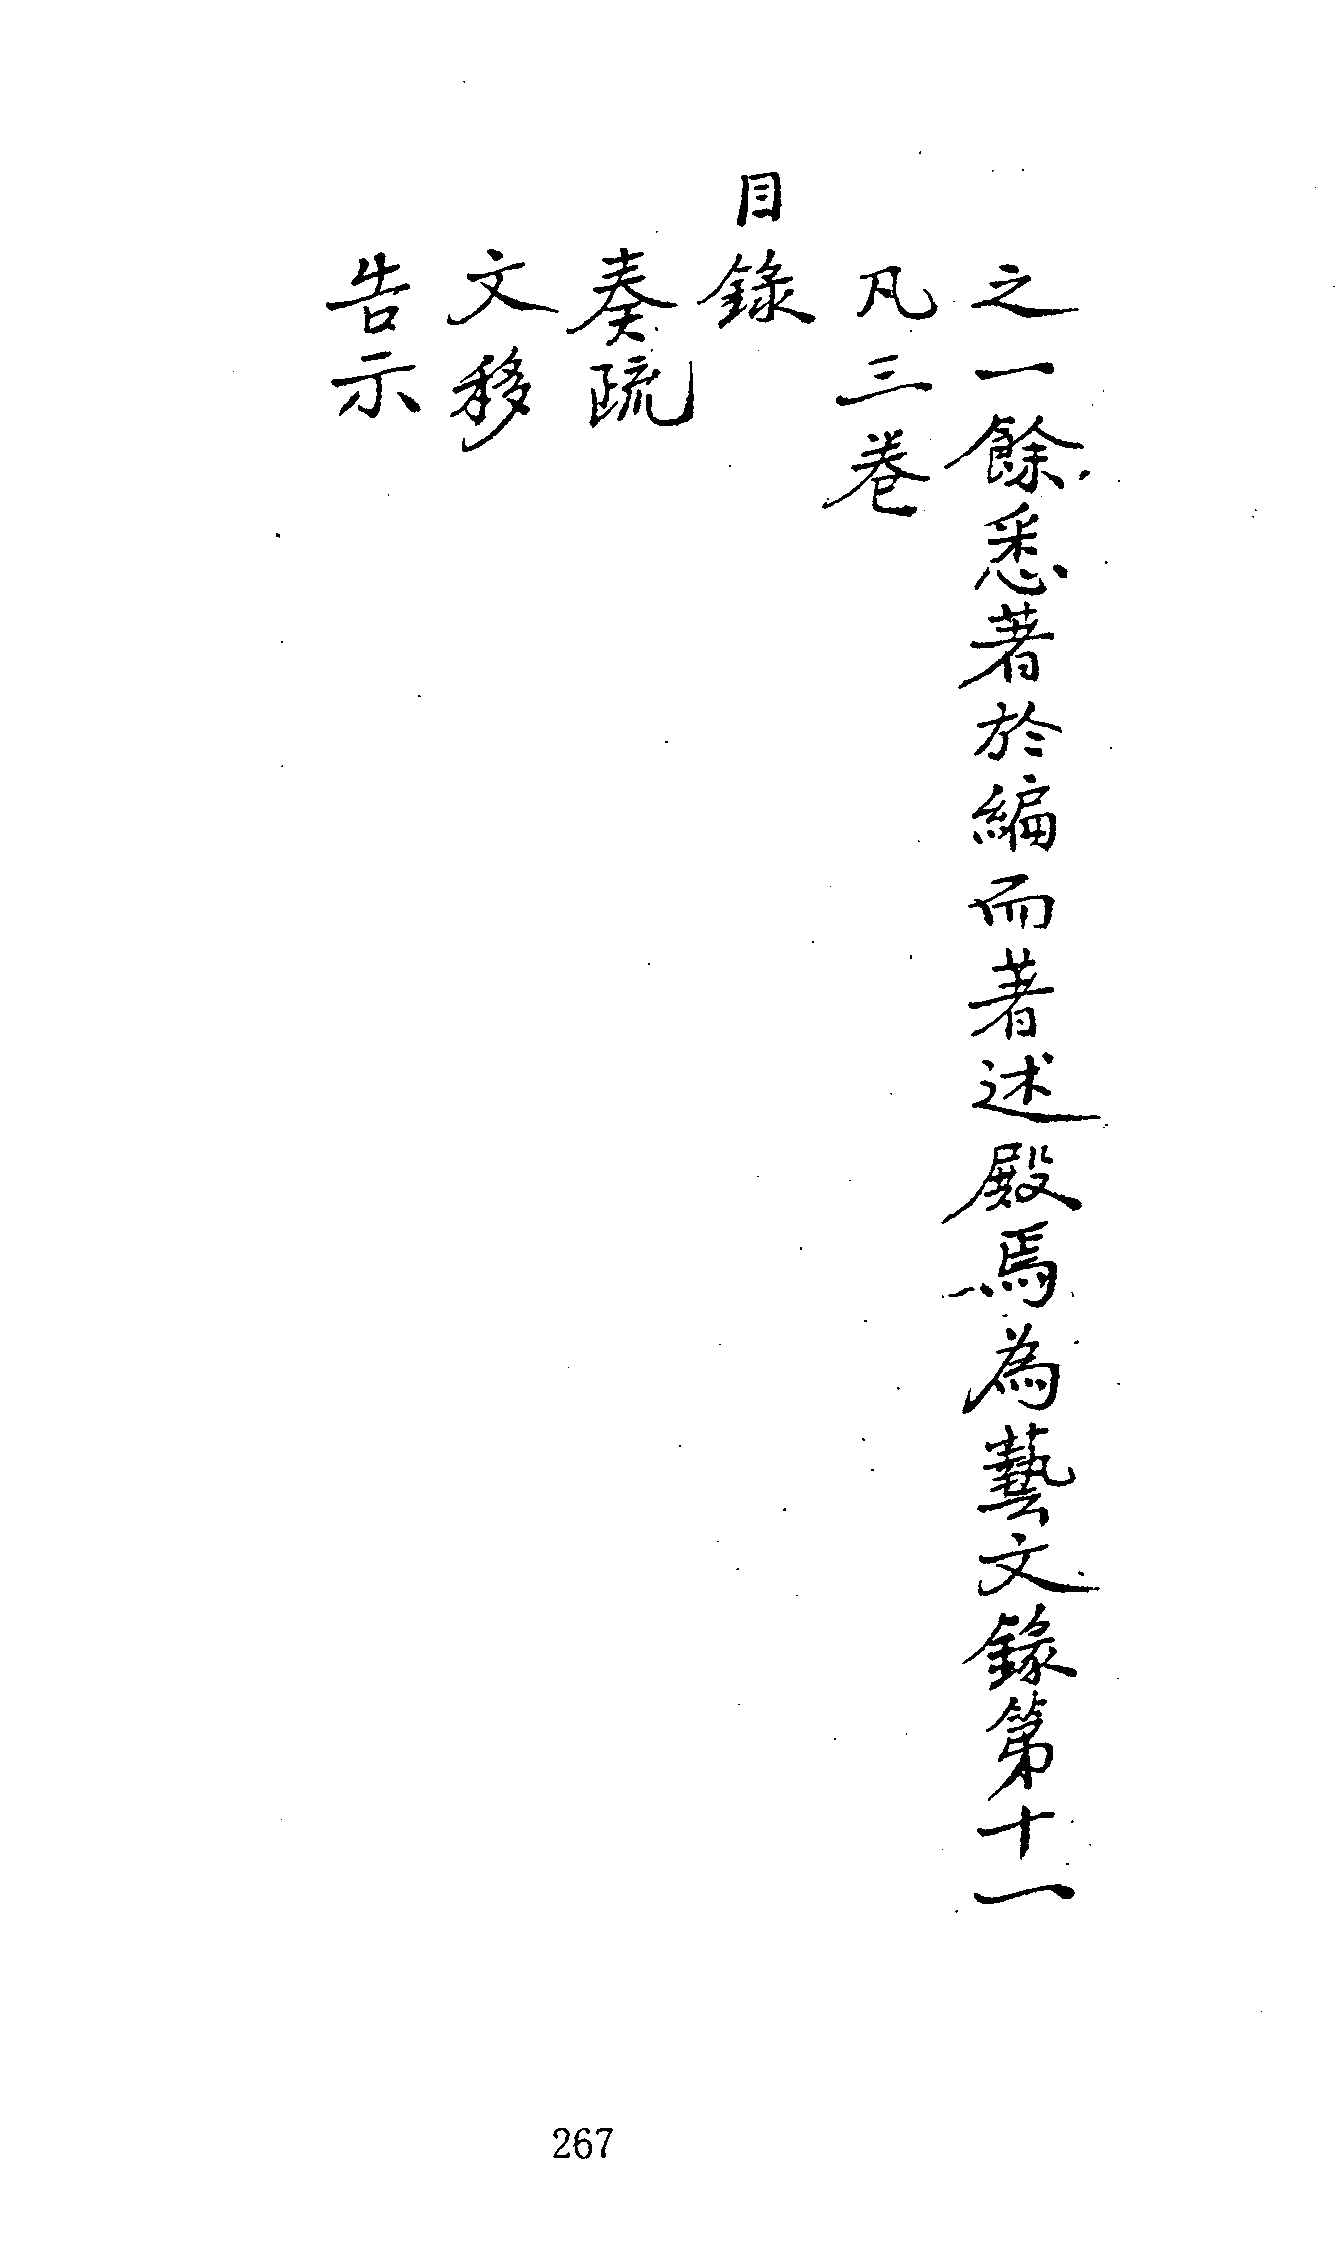 之一餘悉著於編而著述殿焉為藝文錄第十一
凡三卷
目錄
奏疏
文移
告示
267